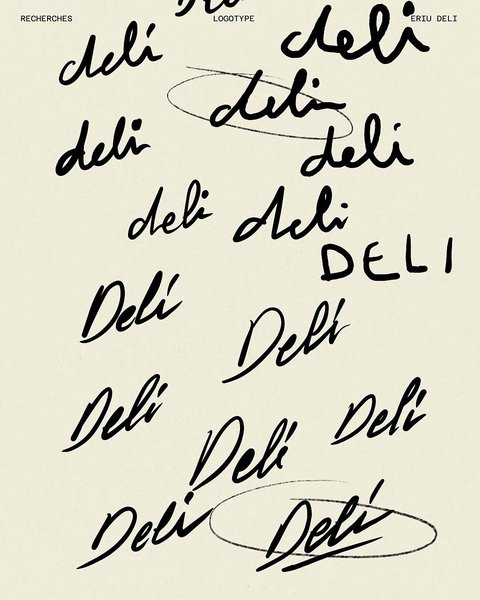 RECHERCHES LOGOTYPE ERIU DELI
deli
deli
deli
deli
deli
deli
deli
DELI
Deli
Deli
Deli
Deli
Deli
Deli
Deli